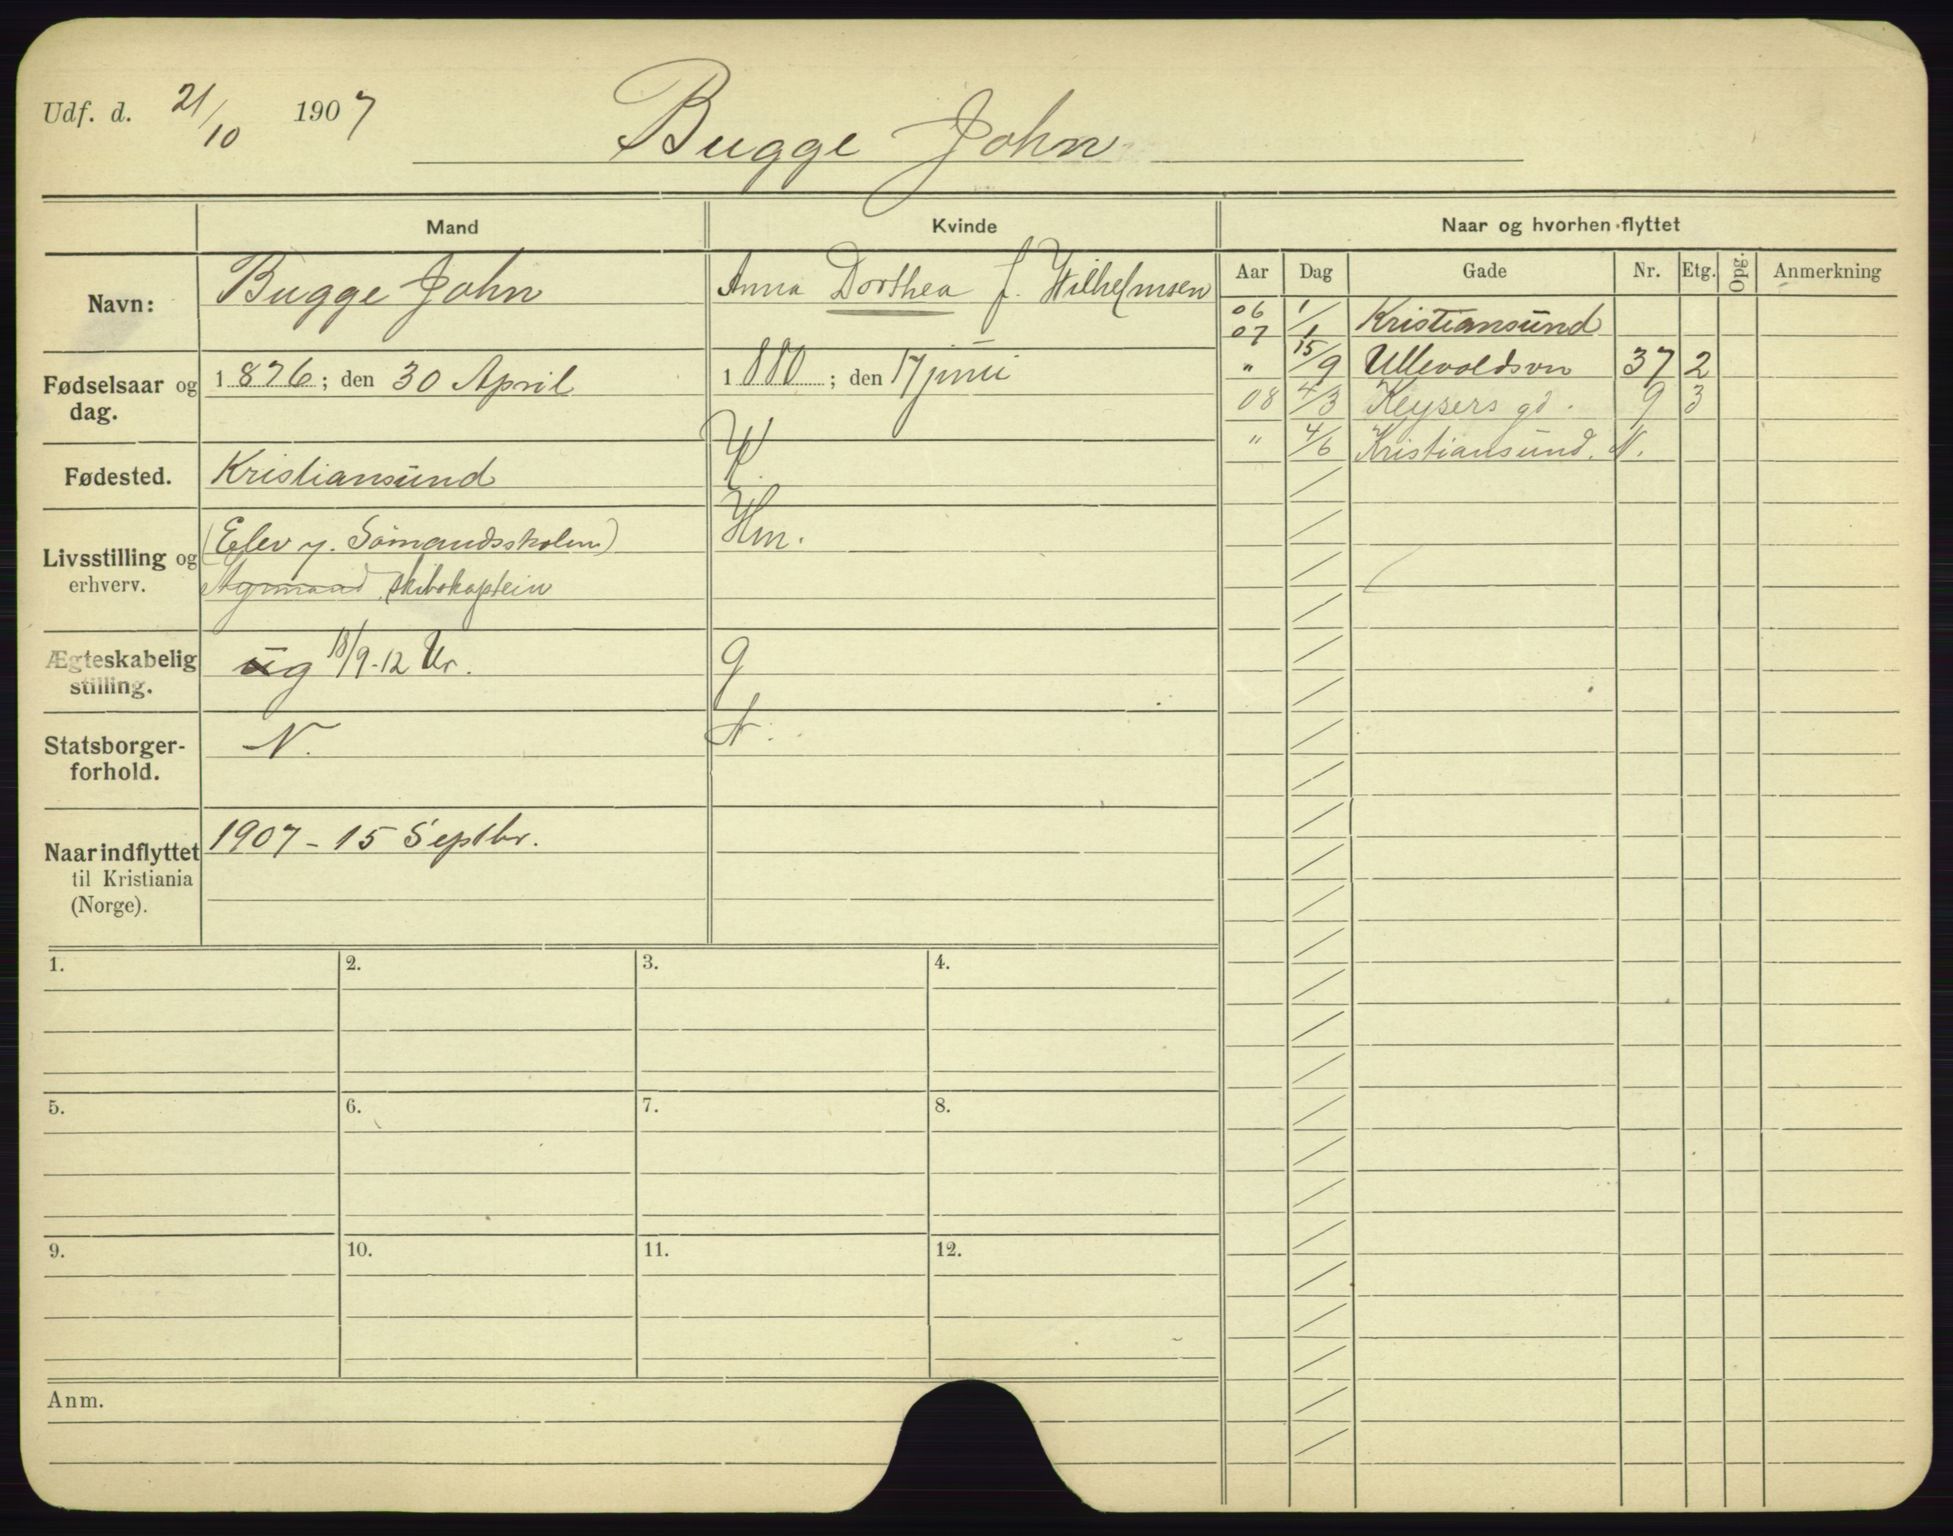 Udf. d. 21/10 1907
Bugge John
Mand Kvinde Naar og hvorhen flyttet
Aar Dag Gade Nr. Etg. Opg. Anmerkning
Navn: Bugge John Anna Dorthea f. Wilhelmsen
Fødselsaar og dag. 1876; den 30 April 1880; den 17 juni
Fødested. Kristiansund K.
Livsstilling og erhverv. (Elev v. Sømandsskolen) Hm.
skibskaptein
Ægteskabelig stilling. ug 18/9-12 Ur. g
Statsborger-forhold. N. N.
Naar indflyttet til Kristiania (Norge). 1907 - 15 Septbr.
06
07 1/1 Kristiansund
" 15/9 Ullevoldsvn 37 2
08 4/3 Keysers gd. 9 3
" 4/6 Kristiansund. N.
1. 2. 3. 4.
5. 6. 7. 8.
9. 10. 11. 12.
Anm.